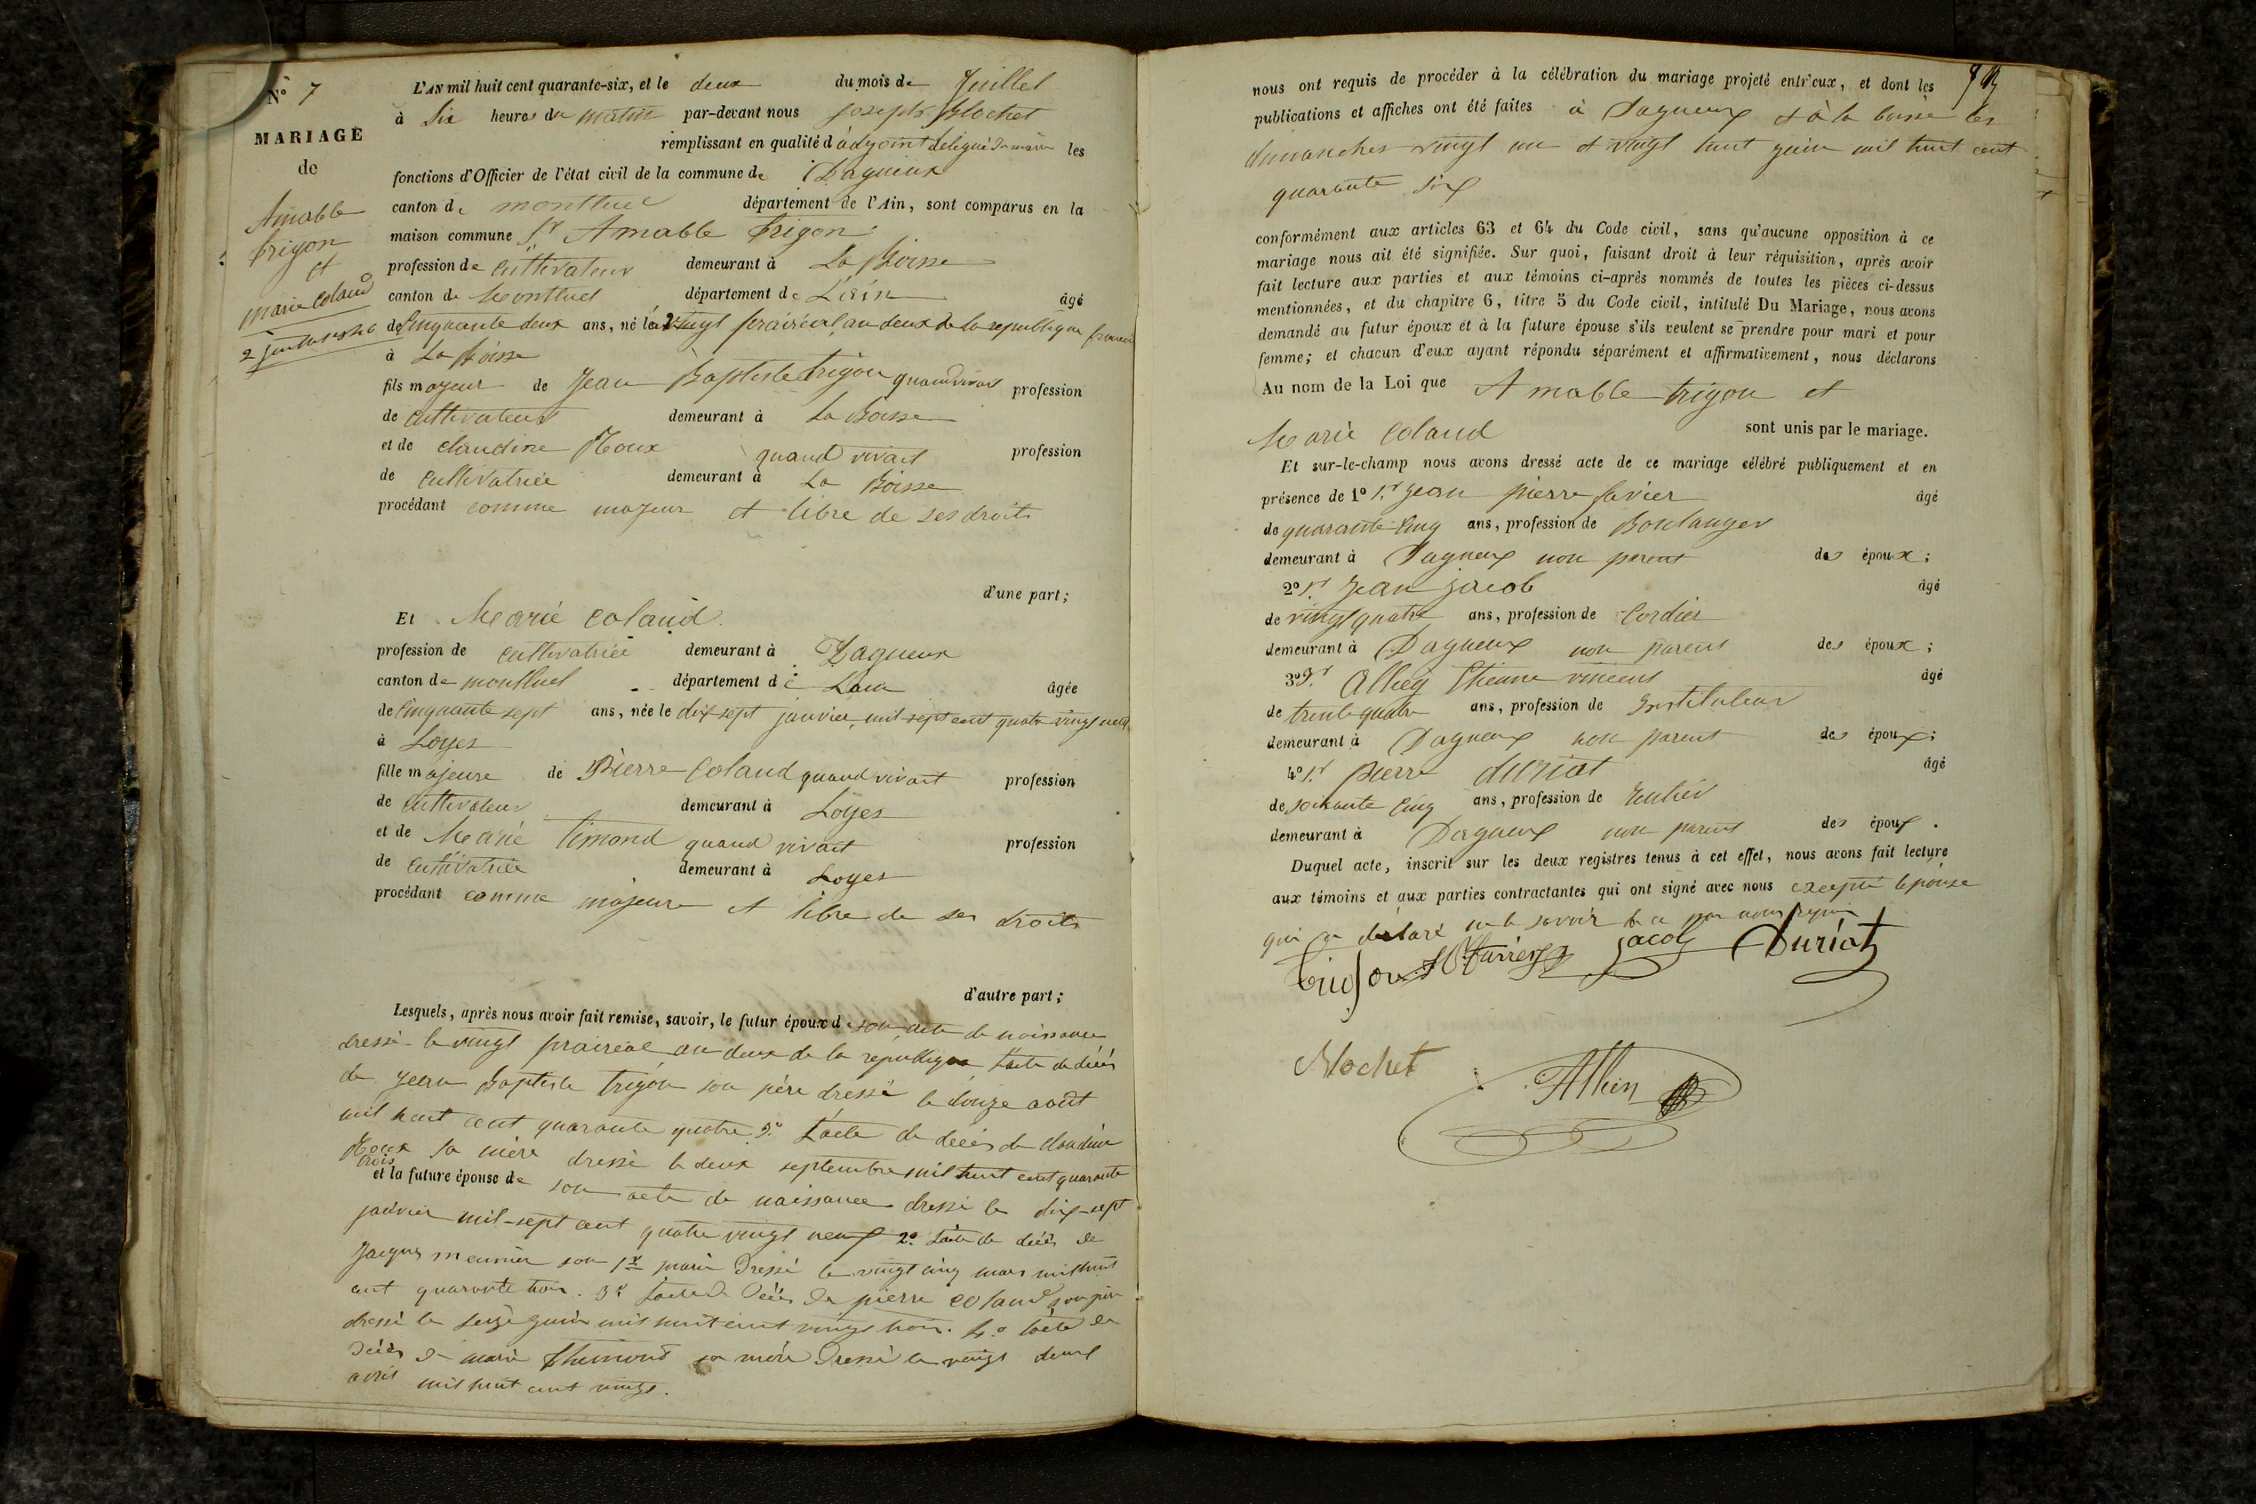 N° 7
MARIAGE
de
Amable
trigon
et
marie Coland
2 juillet 1846
L'AN mil huit cent quarante-six, et le deux du mois de Juillet
à Six heures du matin par-devant nous joseph Mochet
remplissant en qualité d'adjoint délégué du maire les
fonctions d'Officier de l'état civil de la commune de Dagneux
canton de montluel département de l'Ain, sont comparus en la
maison commune Sr Amable trigon
profession de cultivateur demeurant à La Boisse
canton de Montluel département de L'ain âgé
de Cinquante deux ans, né le vingt prairéal an deux de la republique
à La Boisse
fils majeur de Jean Baptiste trigon quand vivait profession
de cultivateur demeurant à La Boisse
et de claudine Roux quand vivait profession
de cultivatrice demeurant à La Boisse
procédant comme majeur et libre de ses droits
d'une part ;
Et Marie coland
profession de cultivatrice demeurant à Dagneux
canton de montluel département de Lain âgée
de Cinquante sept ans, née le dix sept janvier mil sept cent quatre vingt neuf
à Loyes
fille majeure de Pierre Coland quand vivait profession
de cultivateur demeurant à Loyes
et de Marie timond quand vivait profession
de cultivatrice demeurant à Loyes
procédant comme majeure et libre de ses droits
d'autre part ;
Lesquels, après nous avoir fait remise, savoir, le futur époux de son acte de naissance
dressé le vingt prairéal an deux de la république l'acte de décès
de Jean Baptiste trigon son père dressé le douze août
mil huit cent quarante quatre 3° L'acte de décès de claudine
Roux sa mère dressé le deux septembre mil huit cent quarante
trois
et la future épouse de son acte de naissance dressé le dix-sept
janvier mil-sept cent quatre vingt neuf 2° l'acte de décès de
Jacques meunier son 1er mari dressé le vingt cinq mars mil huit
cent quarante trois. 3° l'acte de décès de pierre coland son père
dressé le seize juin mil huit cent vingt trois. 4° l'acte de
décès de marie thimond sa mère dressé le vingt deux
avril mil huit cent vingt.
nous ont requis de procéder à la célébration du mariage projeté entr'eux, et dont les
publications et affiches ont été faites à Dagneux et à la boisse les
dimanches vingt un et vingt huit juin mil huit cent
quarante six
conformément aux articles 63 et 64 du Code civil, sans qu'aucune opposition à ce
mariage nous ait été signifiée. Sur quoi, faisant droit à leur réquisition, après avoir
fait lecture aux parties et aux témoins ci-après nommés de toutes les pièces ci-dessus
mentionnées, et du chapitre 6, titre 5 du Code civil, intitulé Du Mariage, nous avons
demandé au futur époux et à la future épouse s'ils veulent se prendre pour mari et pour
femme; et chacun d'eux ayant répondu séparément et affirmativement, nous déclarons
Au nom de la Loi que Amable trigon et
Marie Coland sont unis par le mariage.
Et sur-le-champ nous avons dressé acte de ce mariage célébré publiquement et en
présence de 1° Sr Jean pierre favier âgé
de quarante cinq ans, profession de Boulanger
demeurant à Dagneux non parent des époux ;
2° Sr Jean jacob âgé
de vingt quatre ans, profession de Cordier
demeurant à Dagneux non parent des époux ;
3° Sr Etienne vincent âgé
de trente quatre ans, profession de Instituteur
demeurant à Dagneux non parent des époux ;
4° Sr pierre duriat âgé
de soixante cinq ans, profession de rentier
demeurant à Dagneux non parent des époux .
Duquel acte, inscrit sur les deux registres tenus à cet effet, nous avons fait lecture
aux témoins et aux parties contractantes qui ont signé avec nous excepté lépouse
qui a déclaré ne le savoir de ce par nous requis
trigon jacob Duriat
Mochet